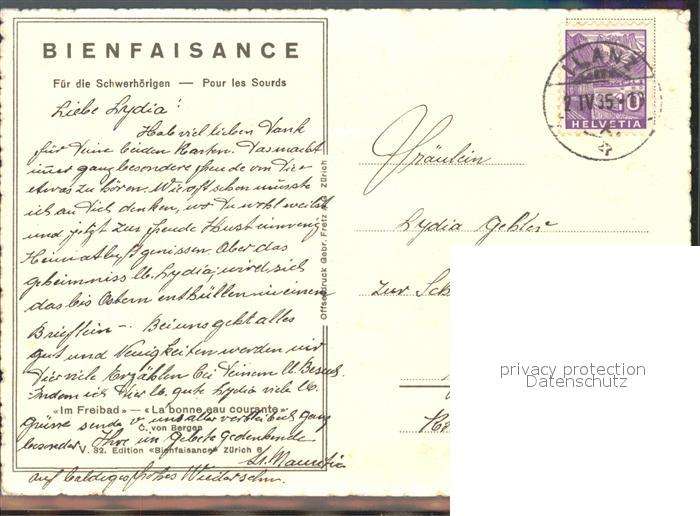 BIENFAISANCE
Für die Schwerhörigen — Pour les Sourds
Liebe Lydia!
Hab viel lieben Dank
für Deine beiden Karten. Das macht
immer ganz besondere Freude von Dir
etwas zu hören. Wie oft schon musste
ich an Dich denken, wo Du wohl weilst
und jetzt zur Freude Hast
Heimatluft geniessen. Aber das
geheimniss lb. Lydia, wird sich
das bis Ostern enthüllen in einem
Brieflein –. Bei uns geht alles
gut und Neuigkeiten werden wir
Dir viele Erzählen bei Deinem lb. Besuch.
Indem ich Dir lb. gute Lydia viele lb.
«Im Freibad» — «La bonne eau courante»
Grüsse sende v. uns allen verbleibe ich ganz
C. von Bergen
besonder Ihre im Gebete gedenkende
V. 32. Edition «Bienfaisance» Zürich 6
auf baldiges frohes Wiedersehn.
Offsetdruck Gebr. Fretz AG Zürich
ILANZ
IV 35
10
HELVETIA
Fräulein
Lydia
zur
privacy protection
Datenschutz